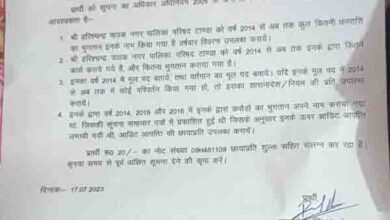 प्रार्थी को सूचना का अधिकार अधिनियम 2005 के
आवश्यकता है:-
1. श्री हरिश्चन्द्र पाठक नगर पालिका परिषद टाण्डा को वर्ष 2014 से अब तक कुल कितनी धनराशि
का भुगतान इनके नाम किया गया है वर्षवार विवरण उपलब्ध करायें।
2. श्री हरिश्चन्द्र पाठक नगर पालिका परिषद टाण्डा को वर्ष 2014 से अब तक इनके द्वारा कितने
कार्य कराये गये हैं, और कितना भुगतान कराया गया है।
3. इनका वर्ष 2014 में मूल पद बतायें, तथा वर्तमान का मूल पद बतायें। यदि इनके मूल पद में 2014
से अब तक में कोई परिवर्तन किया गया हो, तो इसका शासनादेश/नियम की प्रति उपलब्ध
करायें।
4. इनके द्वारा वर्ष 2014, 2015 और 2016 में इनके द्वारा करोड़ों का भुगतान अपने नाम कराया गया
था, जिसकी सूचना समाचार पत्रों में प्रकाशित हुई थी जिसके अनुसार इनके ऊपर आडिट आपत्ति
लगायी गयी थी, आडिट आपत्ति की छायाप्रति उपलब्ध करायें।
प्रार्थी रू0 20/- का नोट संख्या छायाप्रति शुल्क सहित संलग्न कर रहा है।
कृपया समय से पूर्व वांछित सूचना देने की कृपा करें।
दिनांक:- 17.07.2023
प्रार्थी